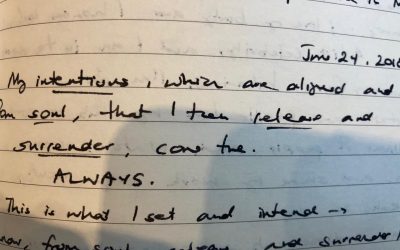 Jan 24, 201
My intentions, which are aligned and
soul, that I then release and
surrender, come true.
ALWAYS.
This is what I set and intend →
now, from soul, release and surrender